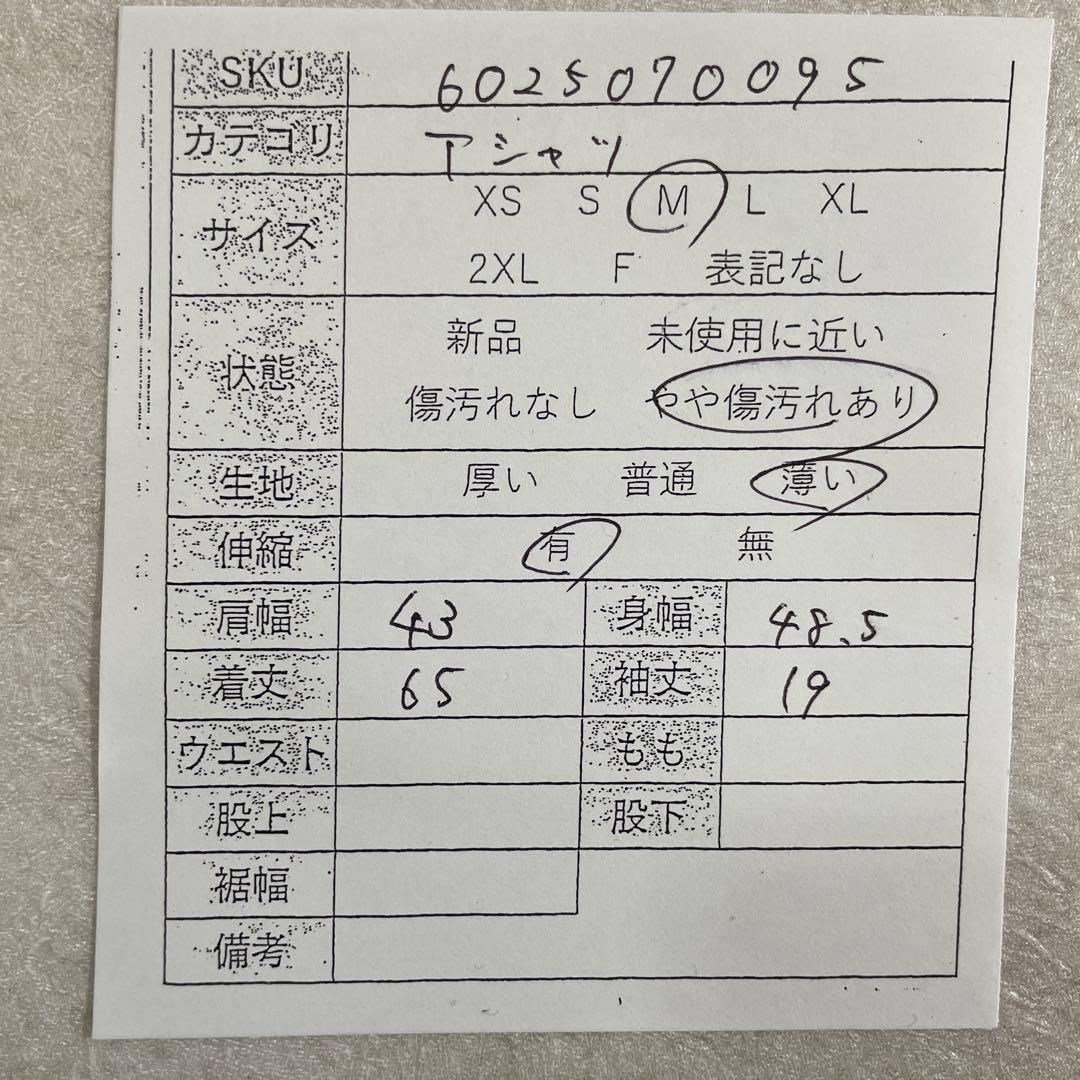 SKU 6025070095
カテゴリ Tシャツ
サイズ XS S M L XL
2XL F 表記なし
状態 新品 未使用に近い
傷汚れなし やや傷汚れあり
生地 厚い 普通 薄い
伸縮 有 無
肩幅 43 身幅 48.5
着丈 65 袖丈 19
ウエスト もも
股上 股下
裾幅
備考